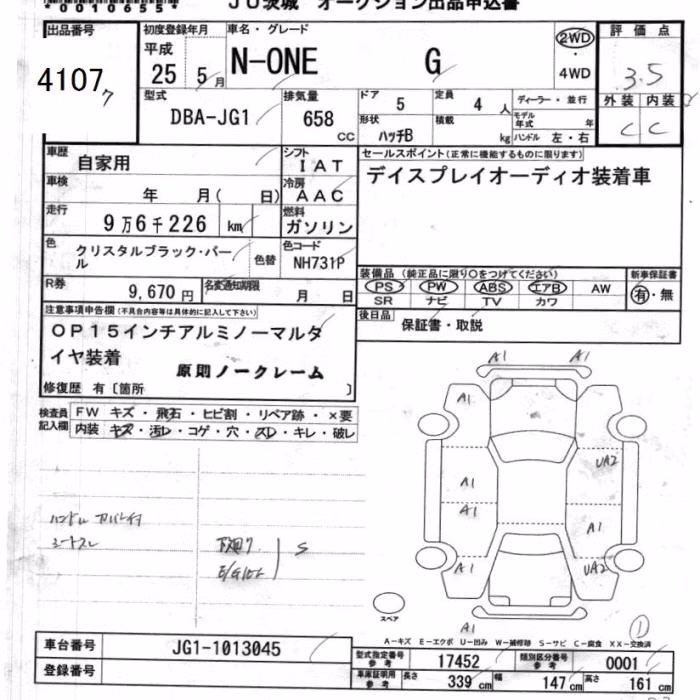 *0010655*
JU茨城 オークション出品申込書
出品番号 初度登録年月 車名・グレード 評価点
4107 平成 25 5月 N-ONE G 2WD・4WD 3.5
型式 排気量 ドア 5 定員 4人 ディーラー・並行 外装 内装
DBA-JG1 658 CC 形状 ハッチB 積載 kg モデル年式 年 ハンドル 左・右 C C
車歴 自家用 シフト IAT セールスポイント(正常に機能するものに限ります)
車検 年 月( 日) 冷房 AAC デイスプレイオーディオ装着車
走行 9万6千226 km 燃料 ガソリン
色 クリスタルブラック・パール 色替 色コード NH731P
装備品 (純正品に限り○をつけてください) 新車保証書
R券 9,670円 名変通知期限 月 日
PS PW ABS エアB AW 有・無
SR ナビ TV カワ
注意事項申告欄(不具合内容等は具体的に記入して下さい)
後日品 保証書・取説
OP15インチアルミノーマルタ
イヤ装着 原則ノークレーム
修復歴 有〔箇所 〕
検査員記入欄 FW キズ・飛石・ヒビ割・リペア跡・×要
内装 キズ・汚レ・コゲ・穴・スレ・キレ・破レ
A1 A1
A1
A1 UA2
A1 A1
A1 UA2
A1
ハンドル カバー付
シートスレ
下廻り
S
スペア
1
A-キズ E-エクボ U-凹み W-補修跡 S-サビ C-腐食 XX-交換済
車台番号 JG1-1013045
型式指定番号 参考 17452 類別区分番号 参考 0001
登録番号
車庫証明用 参考 長さ 339cm 幅 147cm 高さ 161cm